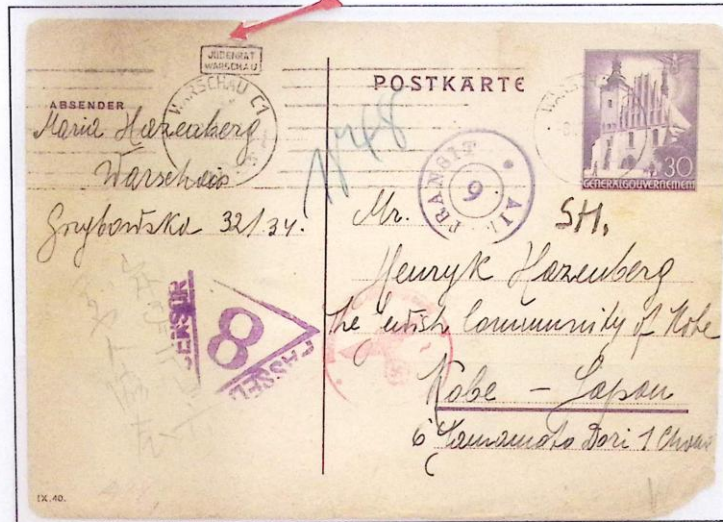 JUDENRAT
WARSCHAU
WARSCHAU C1
ABSENDER
Maria Hazenberg
Warschau
Grzybowska 32/34.
1848
POSTKARTE
30
GENERALGOUVERNEMENT
TRANSIT
9
Mr. SH.
Henryk Hazenberg
The ewish Community of Kobe
Kobe – Japan
6 Yamamoto Dori 1 Chome
PASSED
8
CENSOR
IX.40.